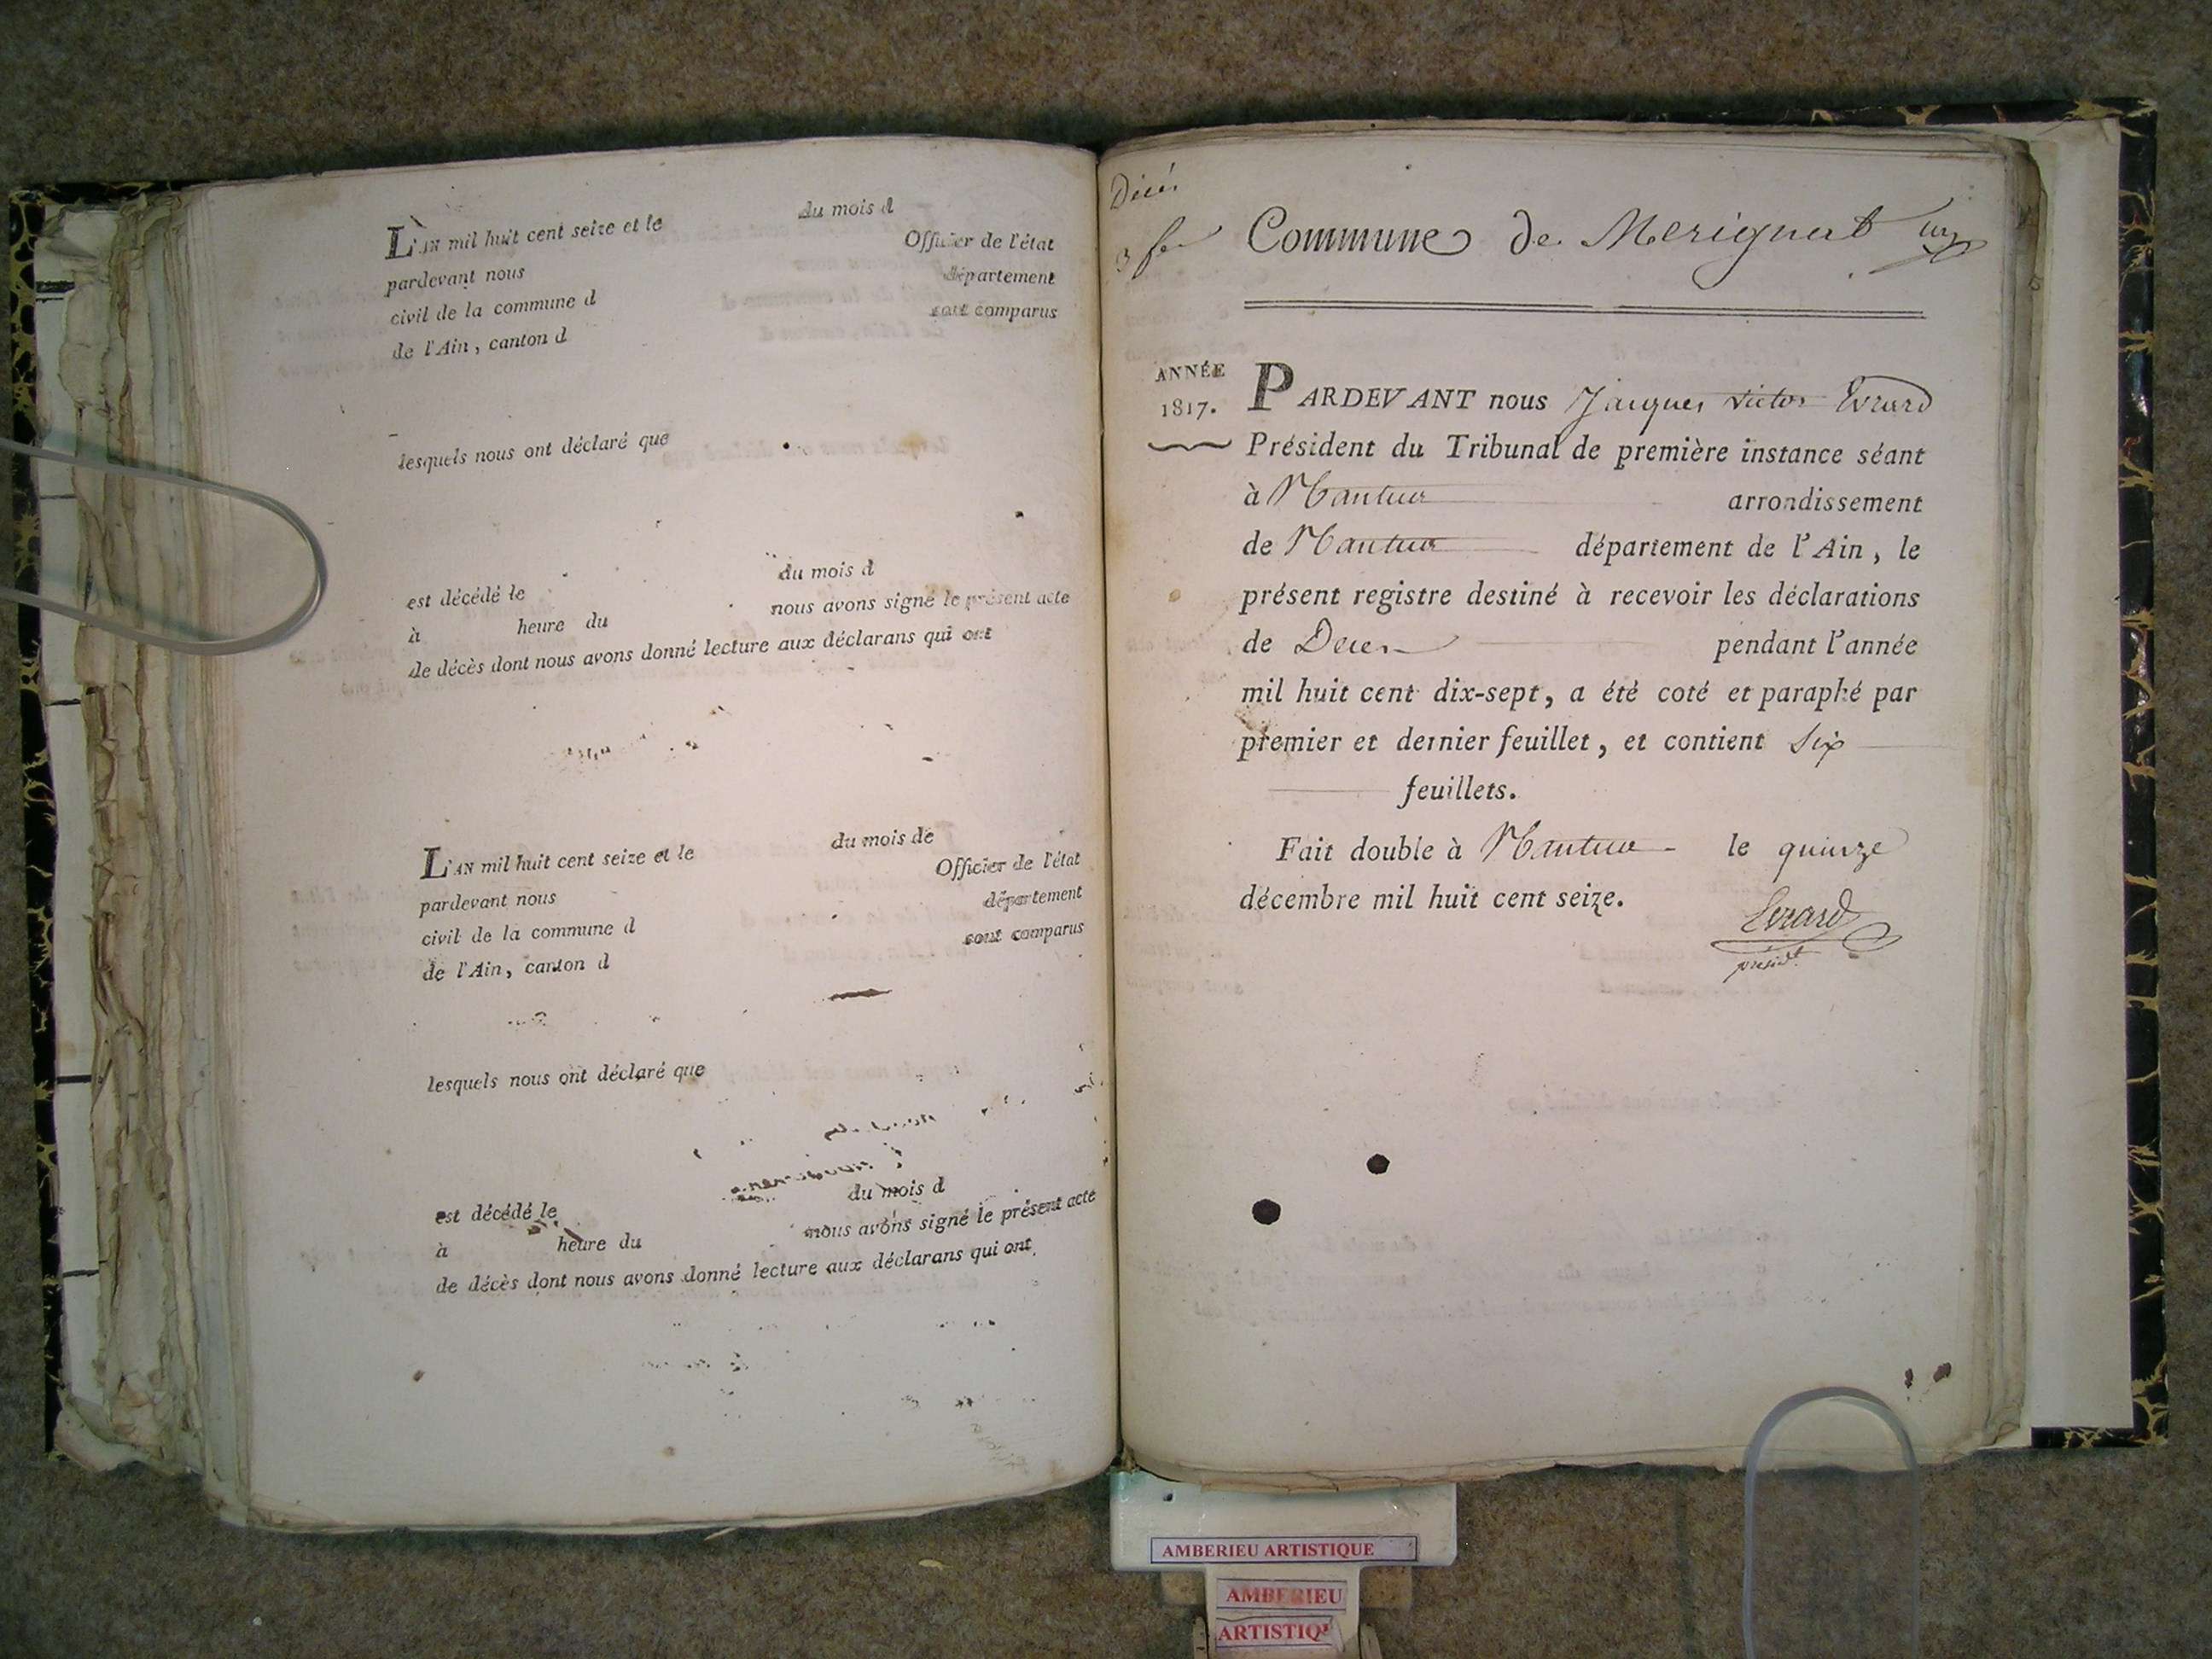 du mois d
L'AN mil huit cent seize et le
Officier de l'état
pardevant nous
département
civil de la commune d
sont comparus
de l'Ain, canton d
lesquels nous ont déclaré que
du mois d
est décédé le
nous avons signé le présent acte
à heure du
de décès dont nous avons donné lecture aux déclarans qui ont
du mois de
L'AN mil huit cent seize et le
Officier de l'état
pardevant nous
département
civil de la commune d
sont comparus
de l'Ain, canton d
lesquels nous ont déclaré que
du mois d
est décédé le
nous avons signé le présent acte
à heure du
de décès dont nous avons donné lecture aux déclarans qui ont
Décès
3 f
Commune de Merignat
un
ANNÉE
1817.
PARDEVANT nous Jacques Victor Evrard
Président du Tribunal de première instance séant
à Nantua arrondissement
de Nantua département de l'Ain, le
présent registre destiné à recevoir les déclarations
de Deces pendant l'année
mil huit cent dix-sept, a été coté et paraphé par
premier et dernier feuillet, et contient six
feuillets.
Fait double à Nantua le quinze
décembre mil huit cent seize.
Evrard
présidt
AMBERIEU ARTISTIQUE
AMBERIEU
ARTISTIQU